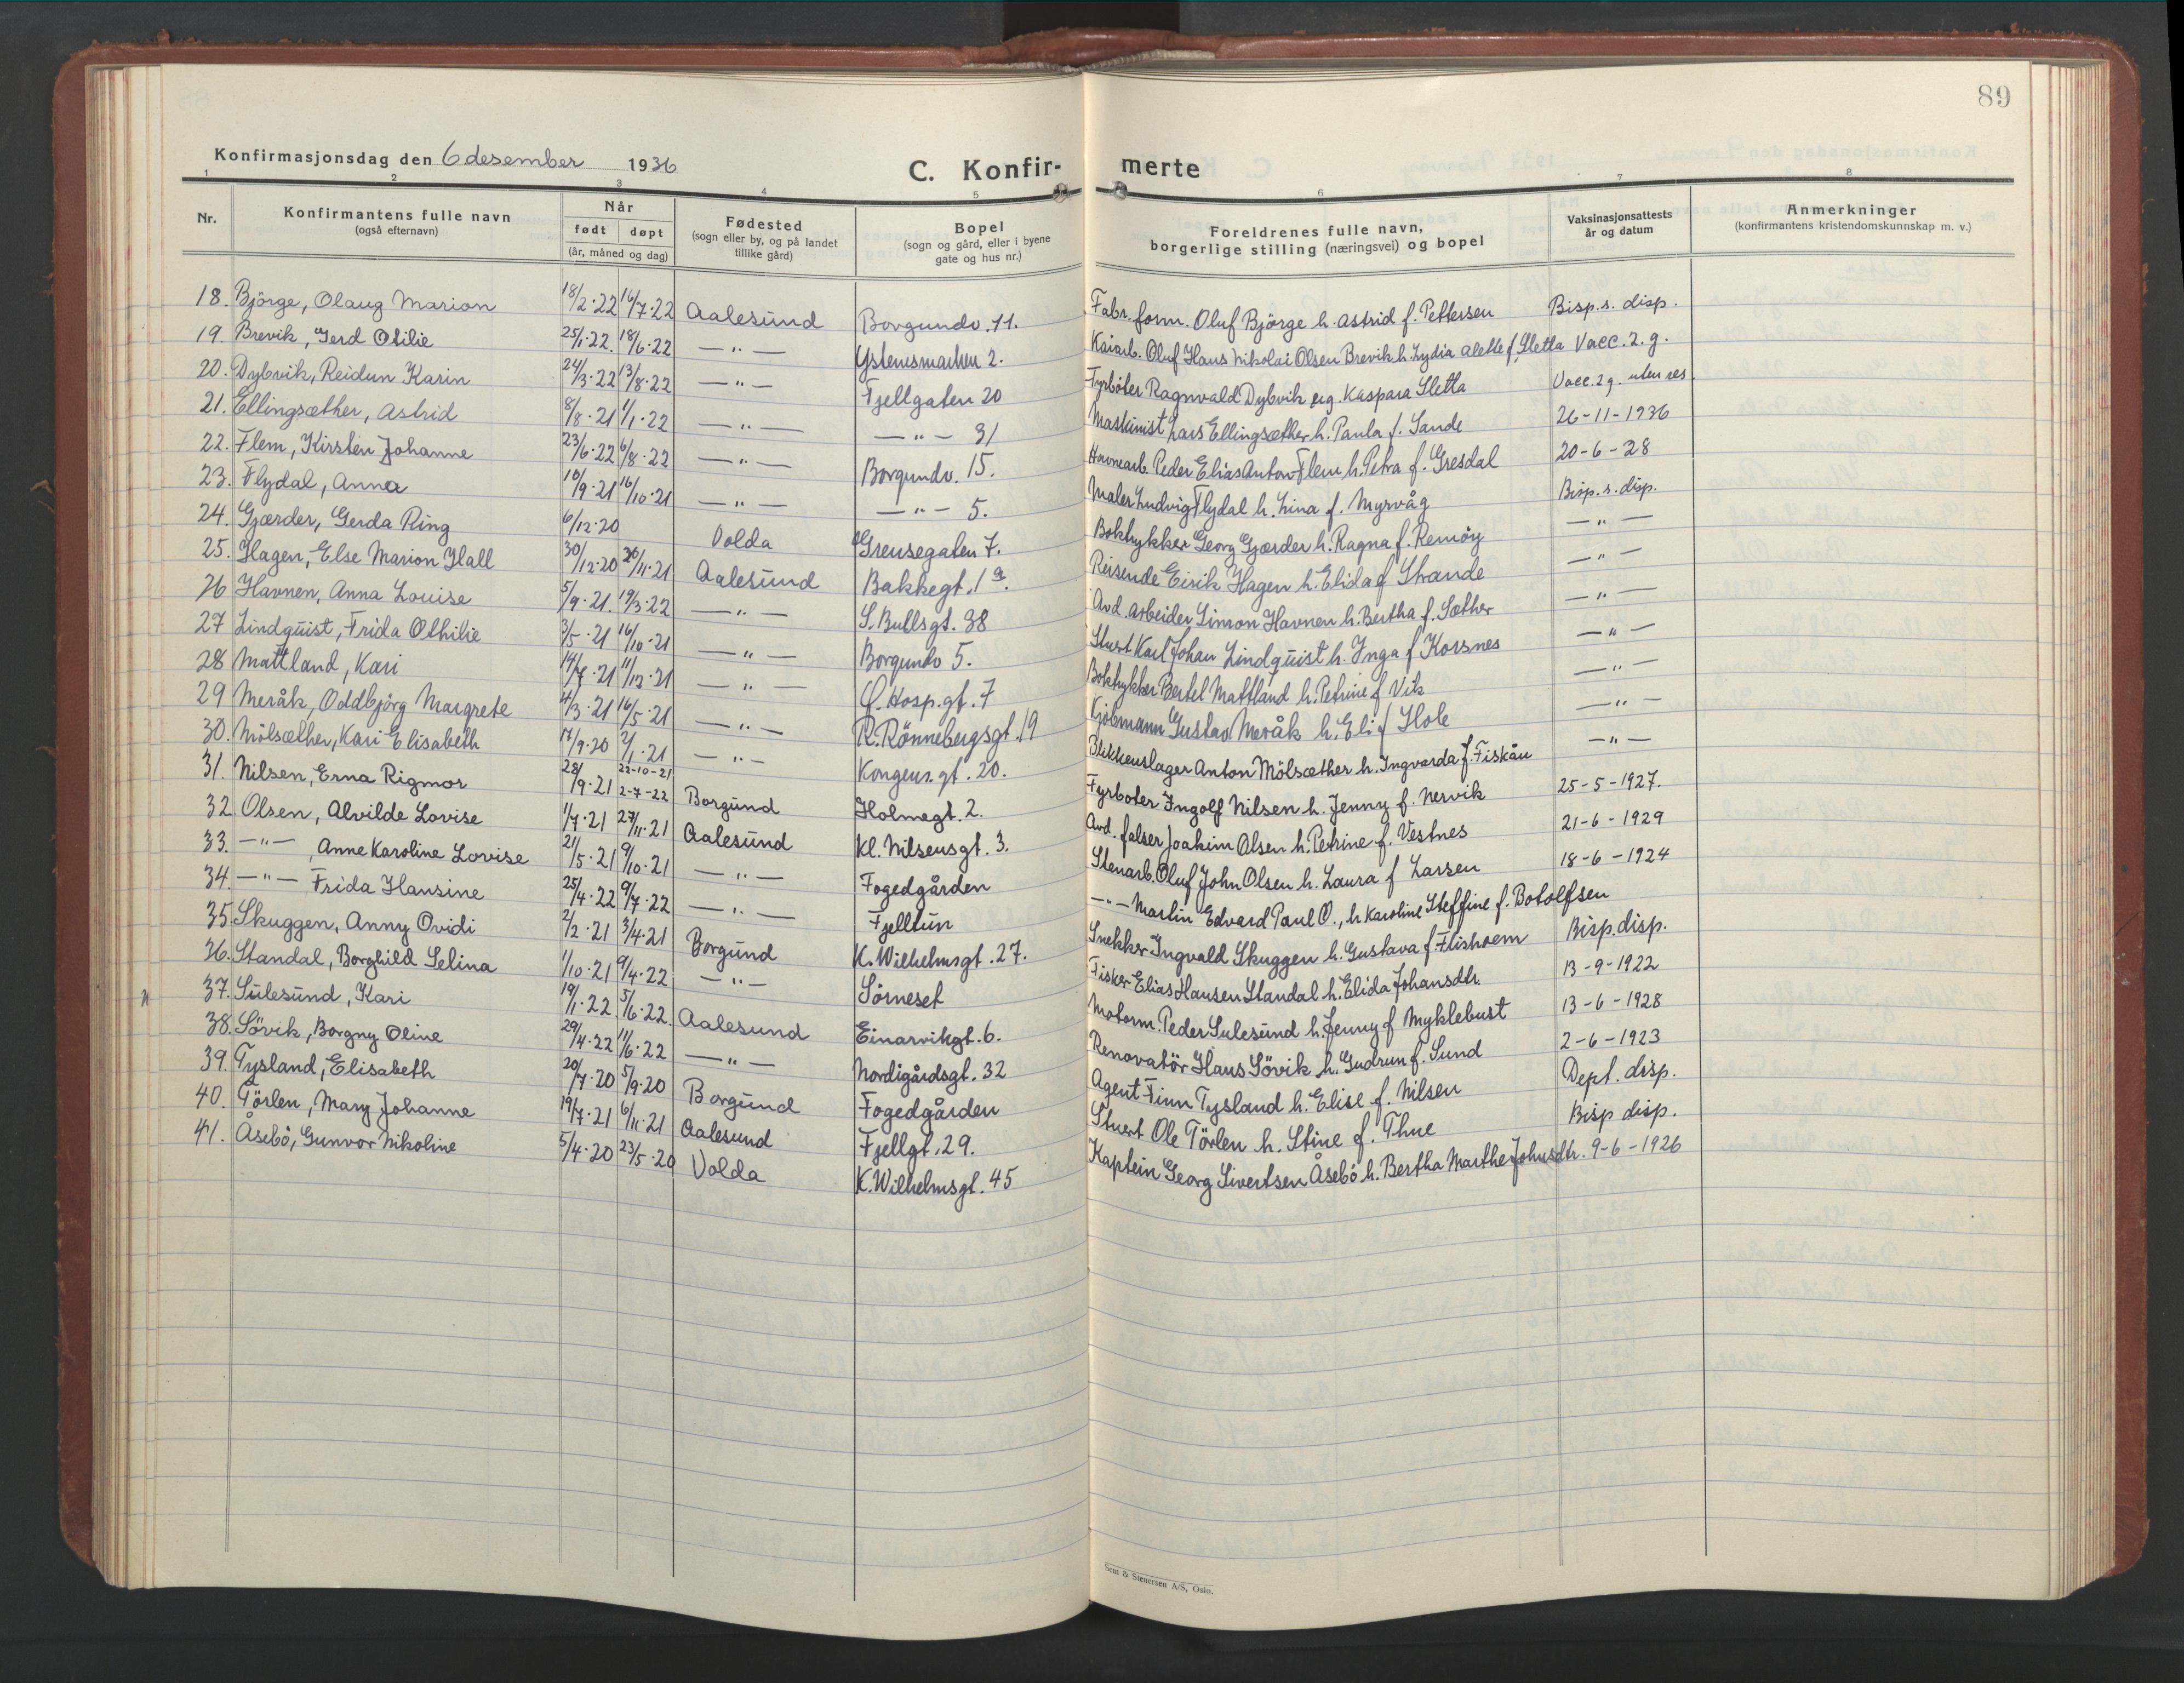 89
Konfirmasjonsdag den 6 desember 1936
C. Konfir- merte
1 2 3 4 5 6 7 8
Nr.
Konfirmantens fulle navn
(også efternavn)
Når
født døpt
(år, måned og dag)
Fødested
(sogn eller by, og på landet
tillike gård)
Bopel
(sogn og gård, eller i byene
gate og hus nr.)
Foreldrenes fulle navn,
borgerlige stilling (næringsvei) og bopel
Vaksinasjonsattests
år og datum
Anmerkninger
(konfirmantens kristendomskunnskap m. v.)
18. Björge, Olaug Marion 18/2·22 16/7·22 Aalesund Borgundv. 11. Fabr. form. Oluf Björge h. Astrid f. Pettersen Bisp. s. disp.
19. Brevik, Gerd Otilie 25/1·22. 18/6·22 —"— Ystenesmarken 2. Kaiarb. Oluf Hans Nikolai Olsen Brevik h. Lydia Alette f. Sletta Vacc. 2. g.
20. Dybvik, Reidun Karin 24/3·22 13/8·22 —"— Fjellgaten 20 Fyrböter Ragnvald Dybvik og Kaspara Sletta Vacc. 2 g. uten res.
21. Ellingsæther, Astrid 8/8·21 1/1·22 —"— —"— 31 Maskinist Lars Ellingsæther h. Paula f. Sande 26-11-1936
22. Flem, Kirsten Johanne 23/6·22 6/8·22 —"— Borgundv. 15. Havnearb. Peder Elias Anton Flem h. Petra f. Gresdal 20-6-28
23. Flydal, Anna 10/9·21 16/10·21 —"— —"— 5. Maler Ludvig Flydal h. Lina f. Myrvåg Bisp. s. disp.
24. Gjærder, Gerda Ring 6/12·20 Volda Grensegaten 7. Boktrykker Georg Gjærder h. Ragna f. Remöy —"—
25. Hagen, Else Marion Hall 30/12·20 20/11·21 Aalesund Bakkegt. 1 a. Reisende Eirik Hagen h. Elida f Strande —"—
26 Havnen, Anna Louise 5/9·21. 19/3·22 —"— S. Bullsgt. 38 Avd. Arbeider Simon Havnen h. Bertha f. Sæther —"—
27 Lindquist, Frida Othilie 3/5·21 16/10·21 —"— Borgundv 5. Stuert Karl Johan Lindquist h. Inga f Korsnes —"—
28 Mattland, Kari 14/7·21 11/12·21 —"— G. Hosp. gt. 7 Boktrykker Bertel Mattland h. Petrine f Vik —"—
29 Meråk, Oddbjörg Margrete 4/3·21 16/5·21 —"— R. Rønnebergsgt. 19 Kjöbmann Gustav Meråk h. Eli f Hole —"—
30. Mölsæther, Kari Elisabeth 17/9·20 2/1·21 —"— Kongens gt. 20. Blikkenslager Anton Mölsæther h. Ingvarda f. Fiskåu —"—
31. Nilsen, Erna Rigmor 28/9·21 22-10-21 2-7-22 Borgund Holmegt. 2. Fyrboter Ingolf Nilsen h. Jenny f. Nervik 25-5-1927.
32. Olsen, Alvilde Lovise 1/7·21 27/11·21 Aalesund Kl. Nilsensgt. 3. Avd. falser Joakim Olsen h. Petrine f. Vestnes 21-6-1929
33. —"—, Anne Karoline Lovise 21/5·21 9/10·21 —"— Fogedgården Stenarb. Oluf John Olsen h. Laura f Larsen 18-6-1924
34. —"— Frida Hansine 25/4·22 9/7·22 —"— Fjelltun —"— Martin Edvard Paul O., h Karoline Steffine f. Botolfsen
35. Skuggen, Anny Ovidi 2/2·21 3/4·21 Borgund K. Wilhelmsgt. 27. Snekker Ingvald Skuggen h. Gustava f. Flisnoem Bisp. disp.
36. Standal, Borghild Selina 1/10·21 9/4·22 —"— Sörneset Fisker Elias Hansen Standal h. Elida Johansdtr. 13-9-1922
37. Sulesund, Kari 19/1·22. 5/6·22. Aalesund Einarvikgt. 6. Motorm. Peder Sulesund h. Jenny f Myklebust 13-6-1928
38. Sövik, Borgny Oline 29/4·22 11/6·22 —"— Nordigårdsgt. 32 Renovatör Hans Sövik h. Gudrun f. Sund 2-6-1923
39. Tysland, Elisabeth 20/7·20 5/9·20 Borgund Fogedgården Agent Finn Tysland h. Elise f. Nilsen Dept. disp.
40. Törlen, Mary Johanne 19/7·21 6/11·21 Aalesund Fjellgt. 29. Stuert Ole Törlen h. Stine f. Thue Bisp disp.
41. Åsebö, Gunvor Nikoline 5/4·20 23/5·20 Volda K. Wilhelmsgt. 45 Kaptein Georg Sivertsen Åsebö h. Bertha Marthe Johnsdtr. 9-6-1926
Sem & Stenersen A/S, Oslo.